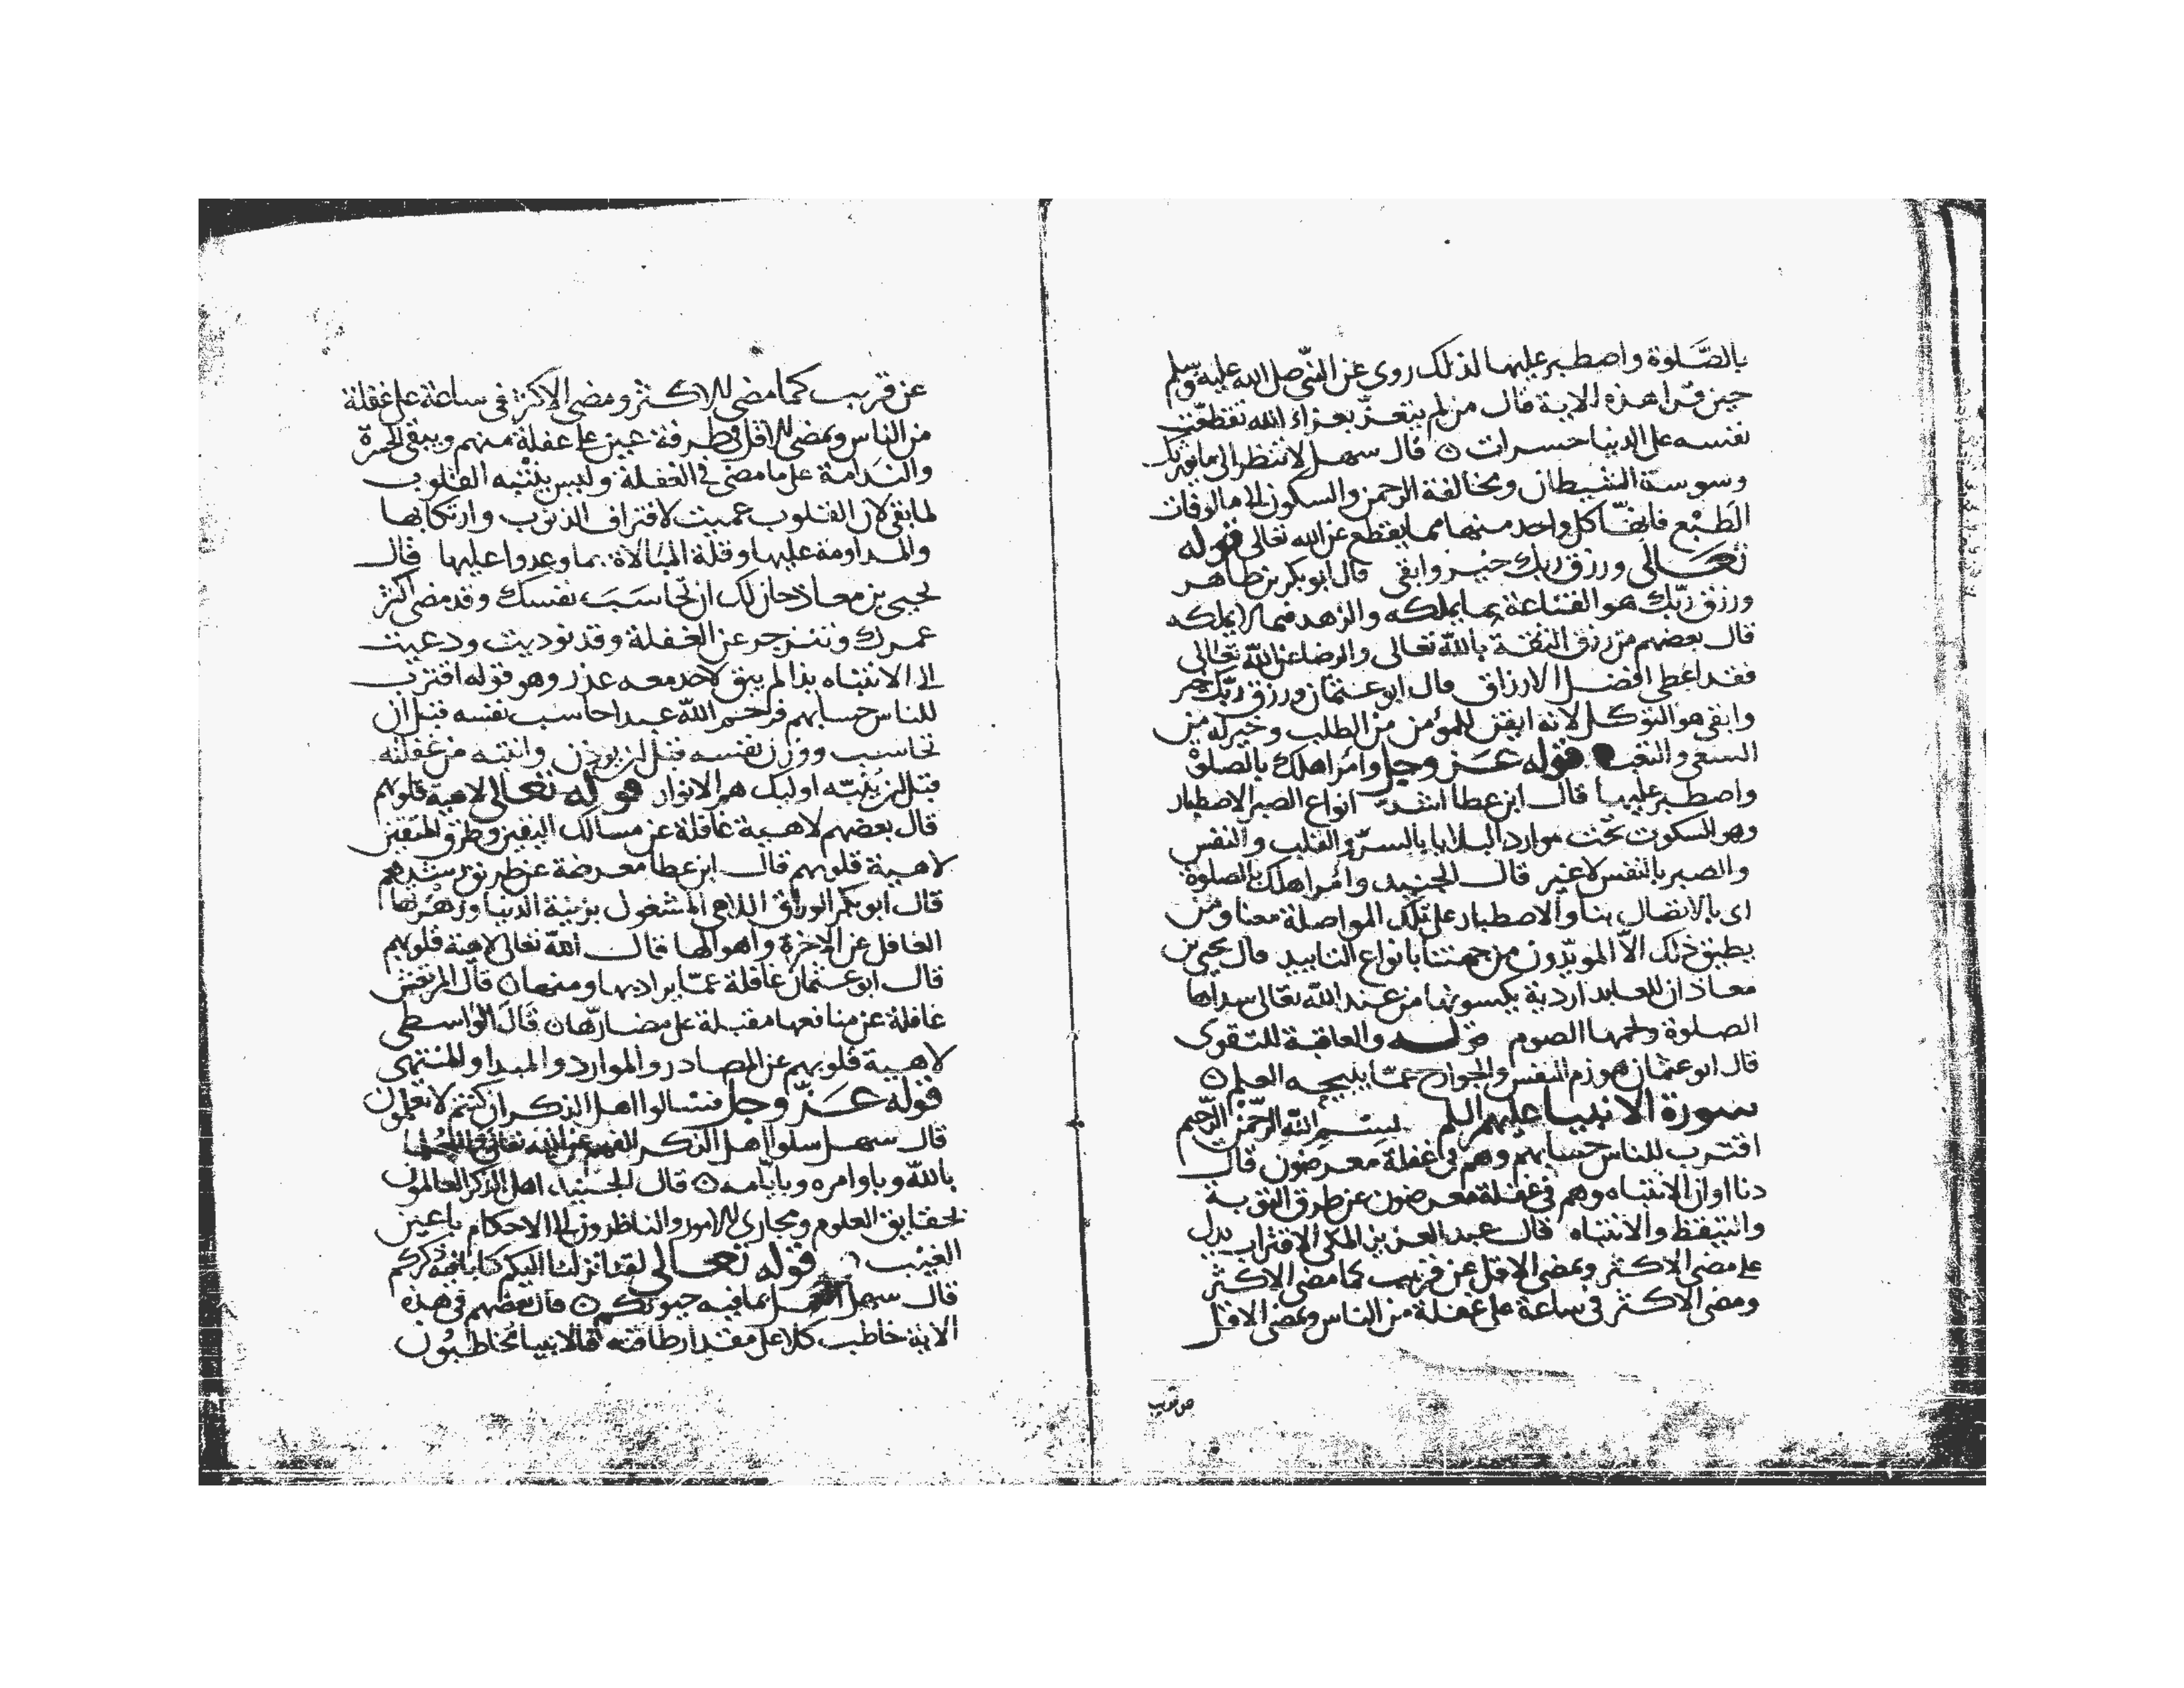 بالصلوة واصطبر عليها لذلك روى عن النبي صلى الله عليه وسلم
حين قرا هذه الاية قال من لم يتعز بعزاء الله تقطعت
نفسه على الدنيا حسرات ه قال سهل لا تنظر الى ما
وسوسة الشيطان ومخالفة الرحمن والسكون الى مالوفات
الطبع فان كل واحد منها مما يقطع عن الله تعالى قوله
تعالى ورزق ربك خير وابقى قال ابو بكر بن طاهر
ورزق ربك هو القناعة بما يملكه والزهد فيما لا يملكه
قال بعضهم من رزق الثقة بالله تعالى والرضا عن الله تعالى
فقد اعطى افضل الارزاق قال ابو عثمان ورزق ربك خير
وابقى هو التوكل لانه ابقى للمؤمن من الطلب وخير له من
السعي والتعب قوله عز وجل وامر اهلك بالصلوة
واصطبر عليها قال ابن عطا اشد انواع الصبر الاصطبار
وهو السكوت تحت موارد البلايا بالسر والقلب والنفس
والصبر بالنفس لا غير قال الجنيد وامر اهلك بالصلوة
اى بالاتصال بنا والاصطبار على تلك المواصلة معنا ومن
يطيق ذلك الا المويدون من جهتنا بانواع التاييد قال يحيى بن
معاذ ان للعابد اردية يكسونها من عند الله تعالى سداها
الصلوة ولحمها الصوم قوله والعاقبة للتقوى
قال ابو عثمان هو زم النفس والجوارح عما يبيحه العلم ه
سورة الانبيا عليهم السلم بسم الله الرحمن الرحيم
اقترب للناس حسابهم وهم فى غفلة معرضون قال
دنا اوان الانتباه وهم فى غفلة معرضون عن طرق التوبة
والتيقظ والانتباه قال عبد العزيز المكى الاقتراب يدل
على مضى الاكثر ويمضى الاقل عن قريب كما مضى الاكثر
ومضى الاكثر فى ساعة على غفلة من الناس ويمضى الاقل
عن قريب
عن قريب كما مضى الاكثر ومضى الاكثر فى ساعة على غفلة
من الناس ويمضى الاقل فى طرفة عين على غفلة منهم ويبقى الحسرة
والندامة على ما مضى فى الغفلة وليس ينتبه القلوب
لما بقى لان القلوب عميت لاقتراف الذنوب وارتكابها
والمداومة عليها وقلة المبالاة بما وعدوا عليها قال
يحيى بن معاذ حان لك ان تحاسب نفسك وقد مضى اكثر
عمرك وتنزجر عن الغفلة وقد نوديت ودعيت
الى الانتباه بذا لم يبق لاحد معه عذر وهو قوله اقترب
للناس حسابهم فرحم الله عبدا حاسب نفسه قبل ان
تحاسب ووزن نفسه قبل ان يوزن وانتبه من غفلته
قبل ان ينبه اوليك هم الانوار قوله تعالى لاهية قلوبهم
قال بعضهم لاهية غافلة عن مسالك اليقين وطرق المتقين
لاهية قلوبهم قال ابن عطا معرضة عن طريق رشدهم
قال ابو بكر الوراق اللاهى المشغول بزينة الدنيا وزهرتها
الغافل عن الاخرة واهوالها قال الله تعالى لاهية قلوبهم
قال ابو عثمان غافلة عما يراد بها ومنها ه قال المرتعش
غافلة عن منافعها مقبلة على مضارها ه قال الواسطى
لاهية قلوبهم عن المصادر والموارد والمبدا والمنتهى
قوله عز وجل فسئالوا اهل الذكر ان كنتم لا تعلمون
قال سهل سلوا اهل الذكر
بالله وباوامره وبايامه ه قال الجنيد اهل الذكر العالمون
بحقايق العلوم ومجارى الامور والناظرون الى الاحكام باعين
الغيب قوله تعالى لقد انزلنا اليكم كتابا فيه ذكركم
قال سهل بما فيه حيوتكم ه قال بعضهم فى هذه
الاية خاطب كلا على مقدار طاقته فالانبيا تخاطبون